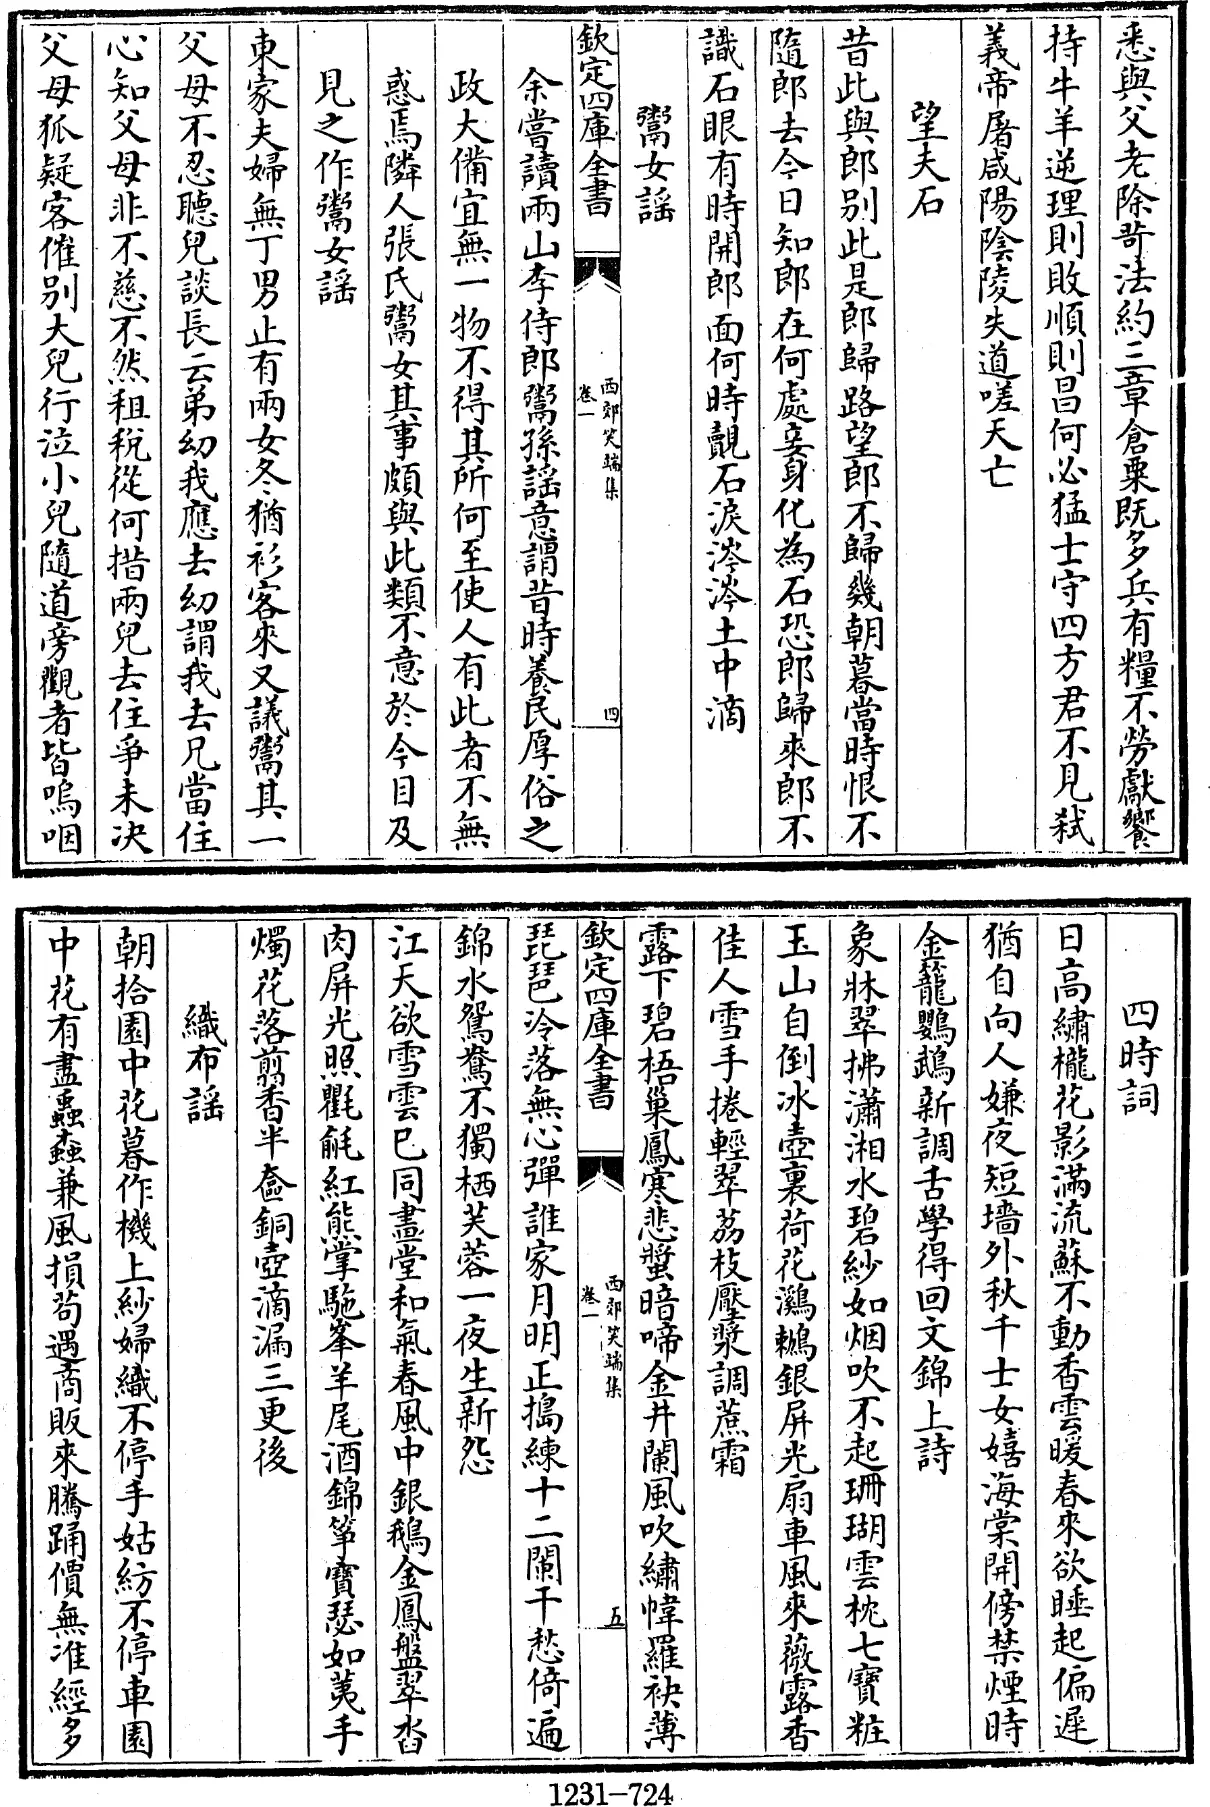 悉與父老除苛法約三章倉粟既多兵有糧不勞獻饗
持牛羊逆理則敗順則昌何必猛士守四方君不見弑
義帝屠咸陽陰陵失道嗟天亡
望夫石
昔此與郎别此是郎歸路望郎不歸幾朝暮當時恨不
隨郎去今日知郎在何處妾身化為石恐郎歸來郎不
識石眼有時開郎面何時覿石淚涔涔土中滴
鬻女謡
欽定四庫全書
西郊笑端集
卷一
四
余嘗讀兩山李侍郎鬻孫謡意謂昔時養民厚俗之
政大備宜無一物不得其所何至使人有此者不無
惑焉隣人張氏鬻女其事頗與此類不意於今目及
見之作鬻女謡
東家夫婦無丁男止有兩女冬猶衫客來又議鬻其一
父母不忍聽兒談長云弟幼我應去幼謂我去兄當住
心知父母非不慈不然租税從何措兩兒去住爭未决
父母狐疑客催别大兒行泣小兒隨道旁觀者皆嗚咽
四時詞
日高繡櫳花影滿流蘇不動香雲暖春來欲睡起偏遲
猶自向人嫌夜短墻外秋千士女嬉海棠開傍禁煙時
金籠鸚鵡新調舌學得回文錦上詩
象牀翠拂瀟湘水碧紗如烟吹不起珊瑚雲枕七寶粧
玉山自倒冰壺裏荷花鸂鶒銀屏光扇車風來薇露香
佳人雪手捲輕翠荔枝壓漿調蔗霜
露下碧梧巢鳳寒悲螿暗啼金井闌風吹繡幃羅袂薄
欽定四庫全書
西郊笑端集
卷一
五
琵琶冷落無心彈誰家月明正搗練十二闌干愁倚遍
錦水鴛鴦不獨栖芙蓉一夜生新怨
江天欲雪雲已同畫堂和氣春風中銀鵝金鳳盤翠沓
肉屏光照氍毹紅熊掌駞峯羊尾酒錦筝寶瑟如荑手
燭花落剪香半奩銅壺滴漏三更後
織布謡
朝拾園中花暮作機上紗婦織不停手姑紡不停車園
中花有盡蟲螙兼風損苟遇商販來騰踊價無准經多
1231-724